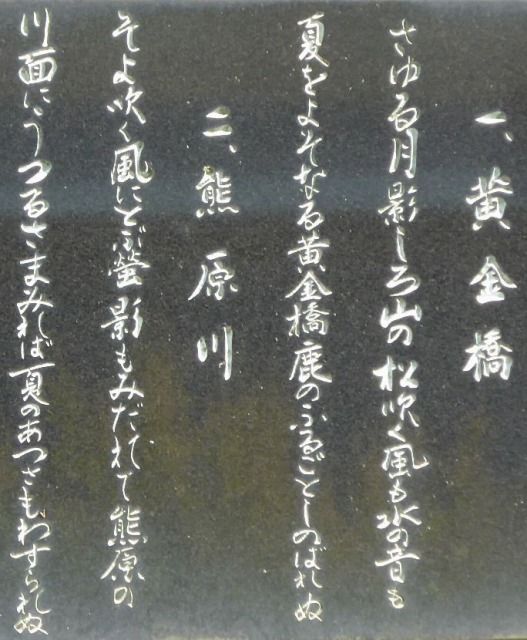 一、黄金橋
さゆる月影しろ山の松吹く風も水の音も
夏をよそなる黄金橋鹿のふゑごとしのばれぬ
二、熊原川
そよ吹く風にとぶ螢影もみだれて熊原の
川面にうつるさまみれば夏のあつさもわすられぬ